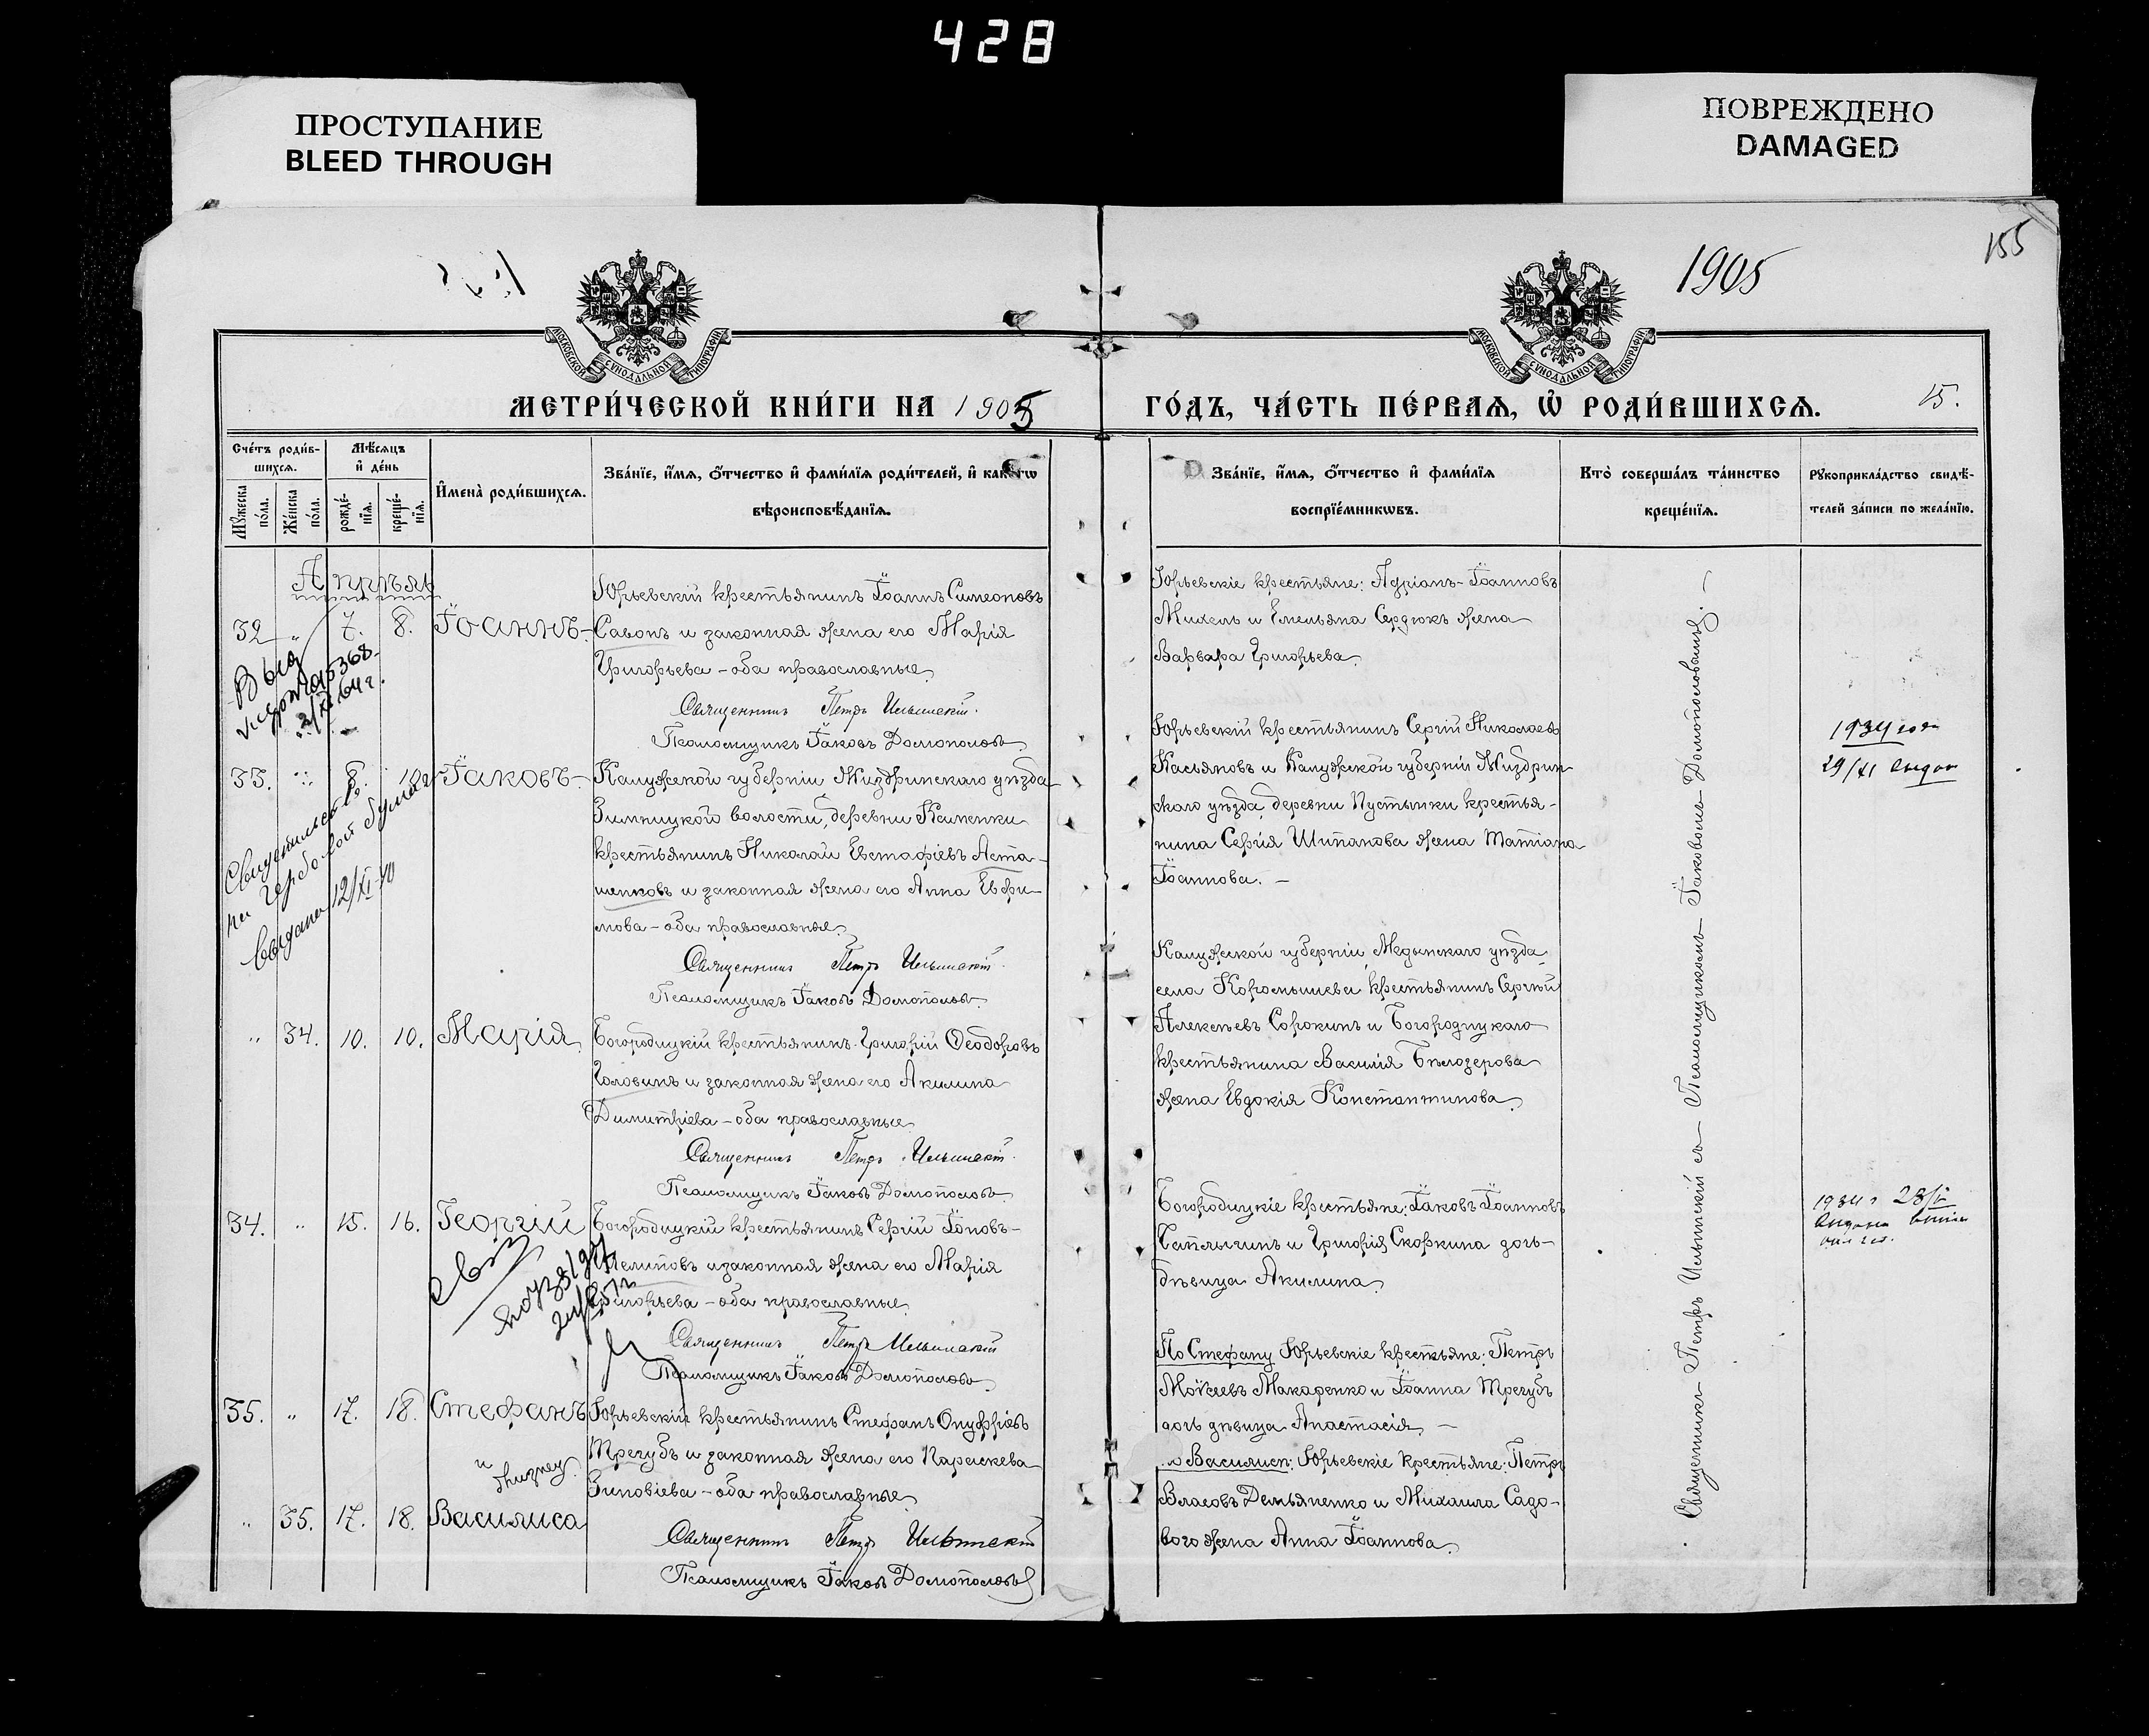 428
ПРОСТУПАНИЕ
BLEED THROUGH
ПОВРЕЖДЕНО
DAMAGED
1905
155
МОСКОВСКОЙ СУНОДАЛЬНОЙ ТИПОГРАФІИ
МОСКОВСКОЙ СУНОДАЛЬНОЙ ТИПОГРАФІИ
МЕТРИ́ЧЕСКОЙ КНИ́ГИ НА 1905
ГО́ДЪ, ЧА́СТЬ ПЕ́РВАѦ, Ѡ РОДИ́ВШИХСѦ.
15.
Сче́тъ роди́в-
шихсѧ.
Мѣ́сѧцъ
и҆ де́нь
Мꙋ́жеска
по́ла.
Же́нска
по́ла.
рожде́-
нїѧ.
креще́-
нїѧ.
И҆мена̀ роди́вшихсѧ.
Зва́нїе, и҆́мѧ, ѻ҆́тчество и҆ фами́лїѧ роди́телей, и҆ какѡ́гѡ
вѣроисповѣ́данїѧ.
Зва́нїе, и҆́мѧ, ѻ҆́тчество и҆ фами́лїѧ
воспрїе́мникѡвъ.
Кто̀ соверша́лъ та́инство
креще́нїѧ.
Рꙋкоприкла́дство свидѣ́-
телей за́писи по жела́нїю.
Апрѣль
32 „ 7. 8. Іоаннъ-
Юрьевскій крестьянинъ Іоаннъ Симеоновъ
Савонъ и законная жена его Марія
Григорьева - оба православные.
Священникъ Петръ Ильинскій.
Псаломщикъ Іаковъ Домонополовъ
Юрьевскіе крестьяне: Адріанъ Іоанновъ
Михель и Емельяна Сердюкъ жена
Варвара Григорьева.
2/XI 64 г.
33. „ 8. 10 Іаковъ-
Калужской губерніи Жиздринскаго уѣзда
Зимницкой волости, деревни Каменки
крестьянинъ Николай Евстафіевъ Аста-
шенковъ и законная жена его Анна Евфи-
мова - оба православные.
Священникъ Петръ Ильинскій.
Псаломщикъ Іаковъ Домонополовъ
Свидетельство
на гербовой бумаге
выдана 12/XI-40
Юрьевскій крестьянинъ Сергій Николаевъ
Касьяновъ и Калужской губерніи Жиздрин-
скаго уѣзда, деревни Пустынки крестья-
нина Сергія Шипанова жена Татіана
Іоаннова. -
1934 года
29/XI выдан
„ 34. 10. 10. Марія
Богородицкій крестьянинъ Григорій Ѳеодоровъ
Головинъ и законная жена его Акилина
Димитріева - оба православные
Священникъ Петръ Ильинскій.
Псаломщикъ Іаковъ Домонополовъ
Калужской губерніи, Медынскаго уѣзда,
села крестьянинъ Сергѣй
Алексѣевъ Сорокинъ и Богородицкаго
крестьянина Василія Бѣлозерова
жена Евдокія Константинова.
34. „ 15. 16. Георгій
Богородицкій крестьянинъ Сергій Іоновъ-
и законная жена его Марія
Григорьева - оба православные.
Священникъ Петръ Ильинскій
Псаломщикъ Іаковъ Домонополовъ
Богородицкіе крестьяне: Іаковъ Іоанновъ
Сапелкинъ и Григорія Скоркина дочь-
дѣвица Акилина.
1934 г 28/V
35. „ 17. 18. Стефанъ
и
„ 35. 17. 18. Василиса
Юрьевскій крестьянинъ Стефанъ Онуфріевъ
Трегубъ и законная жена его Параскева
Зиновіева - оба православные
Священникъ Петръ Ильинскій
Псаломщикъ Іаковъ Домонополовъ
По Стефану Юрьевскіе крестьяне: Петръ
Моѵсеевъ Макаренко и Іоанна Трегубъ
дочь дѣвица Анастасія. -
по Василисѣ: Юрьевскіе крестьяне: Петръ
Власовъ Демьяненко и Михаила Садо-
вого жена Анна Іоаннова.
Священникъ Петръ Ильинскій съ Псаломщикомъ Іаковомъ Домонополовымъ. -